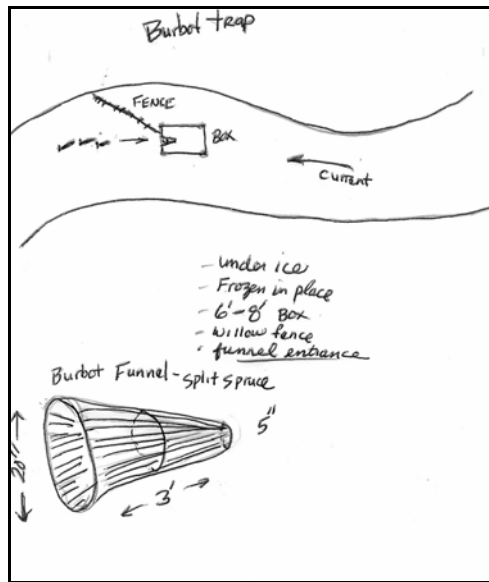 Burbot trap
FENCE
BOX
Current
- under ice
- Frozen in place
- 6'-8' Box
- willow fence
- funnel entrance
Burbot Funnel - split spruce
5"
20"
3'